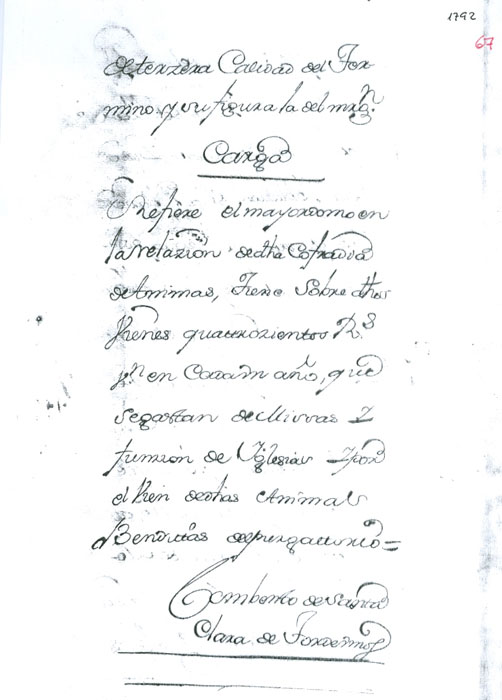 1792
67
de terzera Calidad del Ter
mino, y su figura la del mrgn.
Carga
Refiere el mayordomo en
la relazion de dha Cofradia
de Animas, tiene sobre dhos
vienes quattrozientos Rs
vn en Cada un año, que
se gastan de Missas I
funzion de Yglesia I por
el vien de dhas Animas
Benditas de purgattorio =
Combento de Santa
Clara de